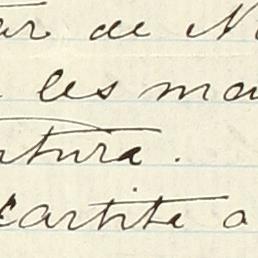 ar de N
les ma
tura.
cartite a